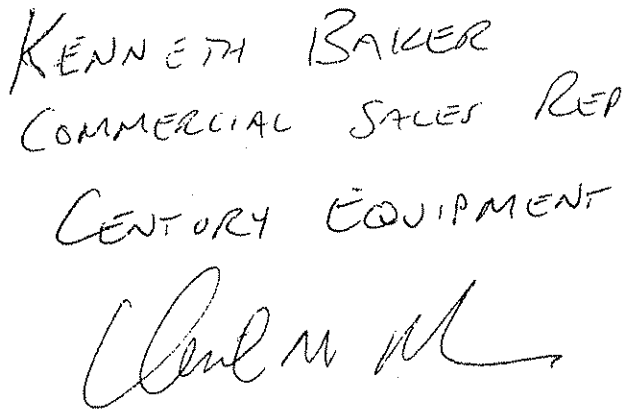 KENNETH BAKER
COMMERCIAL SALES REP
CENTURY EQUIPMENT